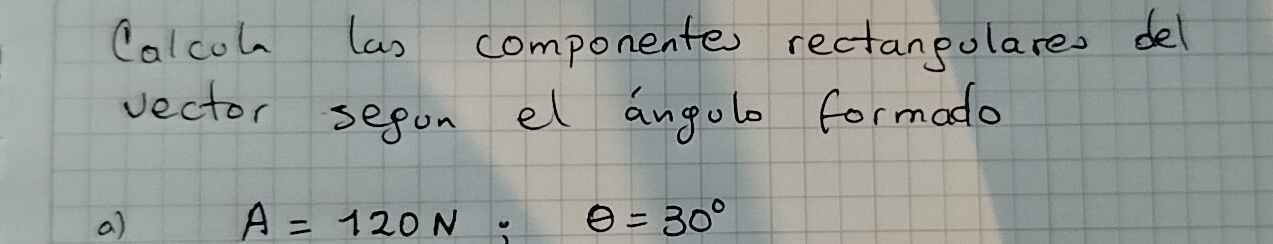 Calcula las componentes rectangulares del
vector segun el ángulo formado
a) A = 120 N ; θ = 30°